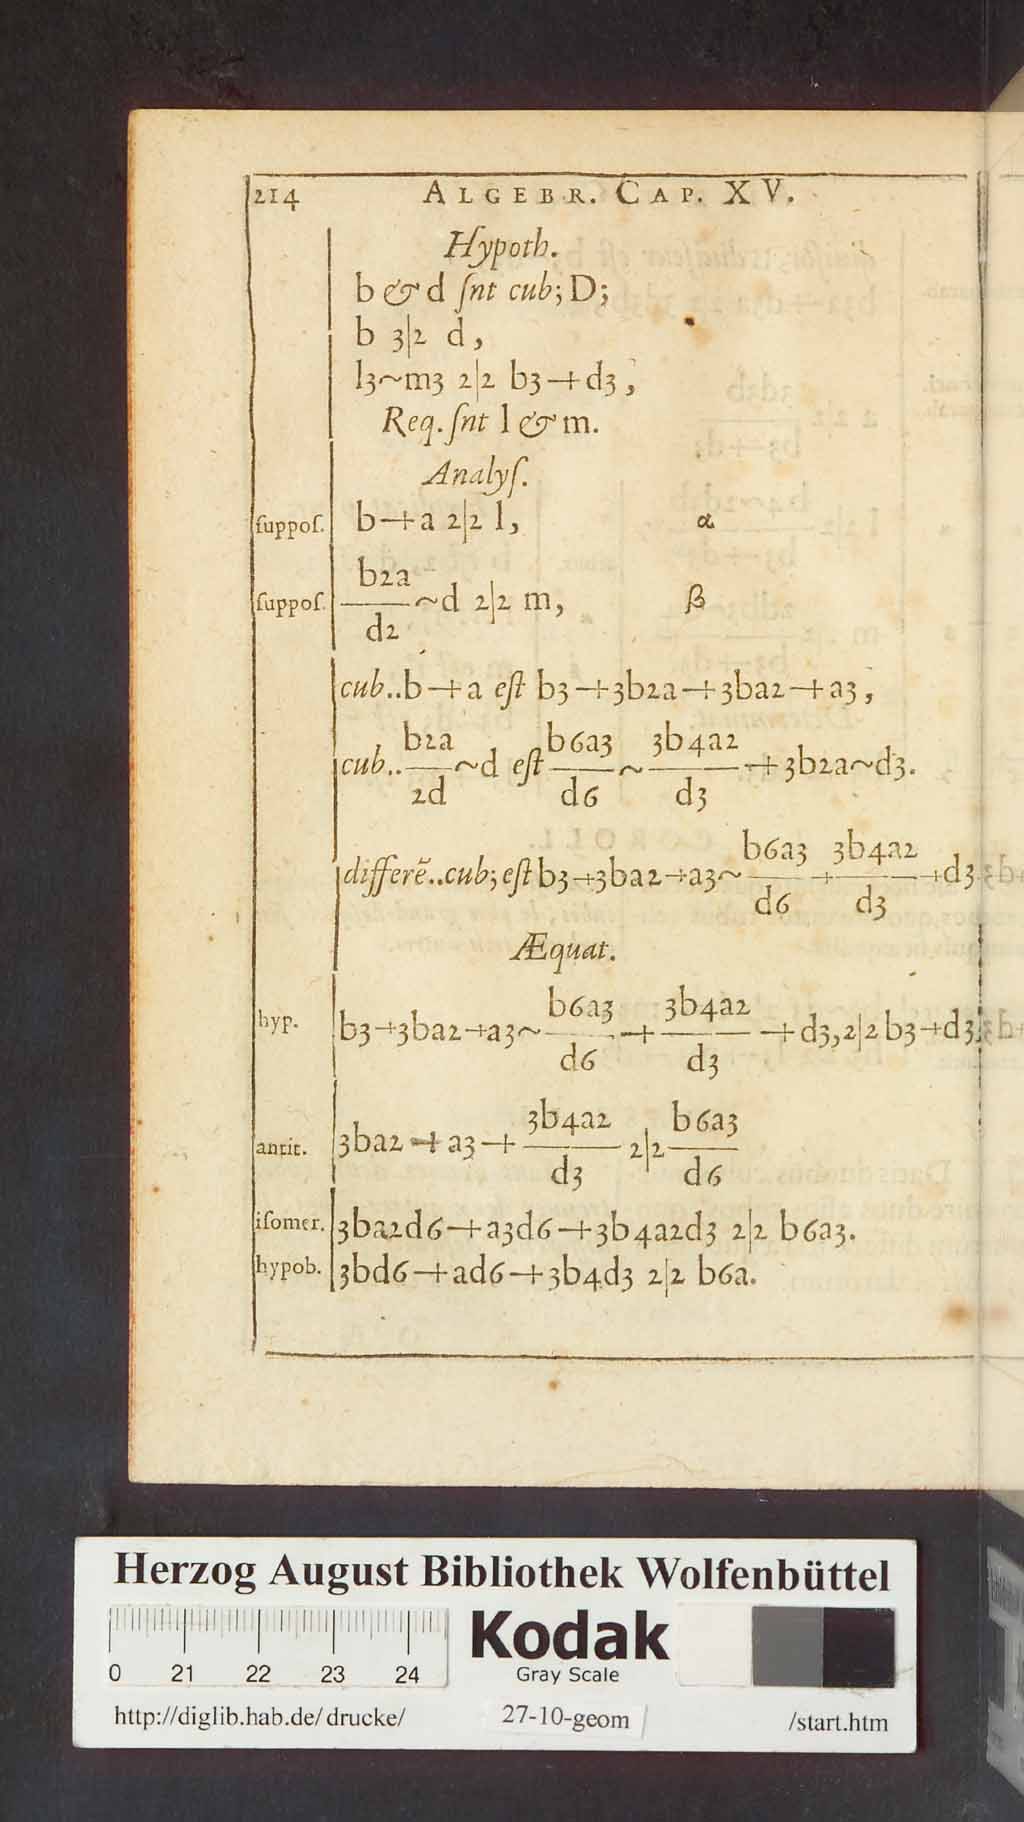 214 ALGEBR. CAP. XV.
Hypoth.
b & d ſnt cub; D;
b 3|2 d,
l3~m3 2|2 b3+d3,
Req. ſnt l & m.
Analyſ.
ſuppoſ. b+a 2|2 l, α
ſuppoſ. b2a/d2 ~d 2|2 m, β
cub..b+a eſt b3+3b2a+3ba2+a3,
cub.. b2a/2d ~d eſt b6a3/d6 ~ 3b4a2/d3 +3b2a~d3.
differẽ..cub; eſt b3+3ba2+a3~ b6a3/d6 + 3b4a2/d3 +d3
Æquat.
hyp. b3+3ba2+a3~ b6a3/d6 + 3b4a2/d3 +d3, 2|2 b3+d3
antit. 3ba2+a3+ 3b4a2/d3 2|2 b6a3/d6
iſomer. 3ba2d6+a3d6+3b4a2d3 2|2 b6a3.
hypob. 3bd6+ad6+3b4d3 2|2 b6a.
Herzog August Bibliothek Wolfenbüttel
Kodak
Gray Scale
0 21 22 23 24
http://diglib.hab.de/drucke/ 27-10-geom /start.htm